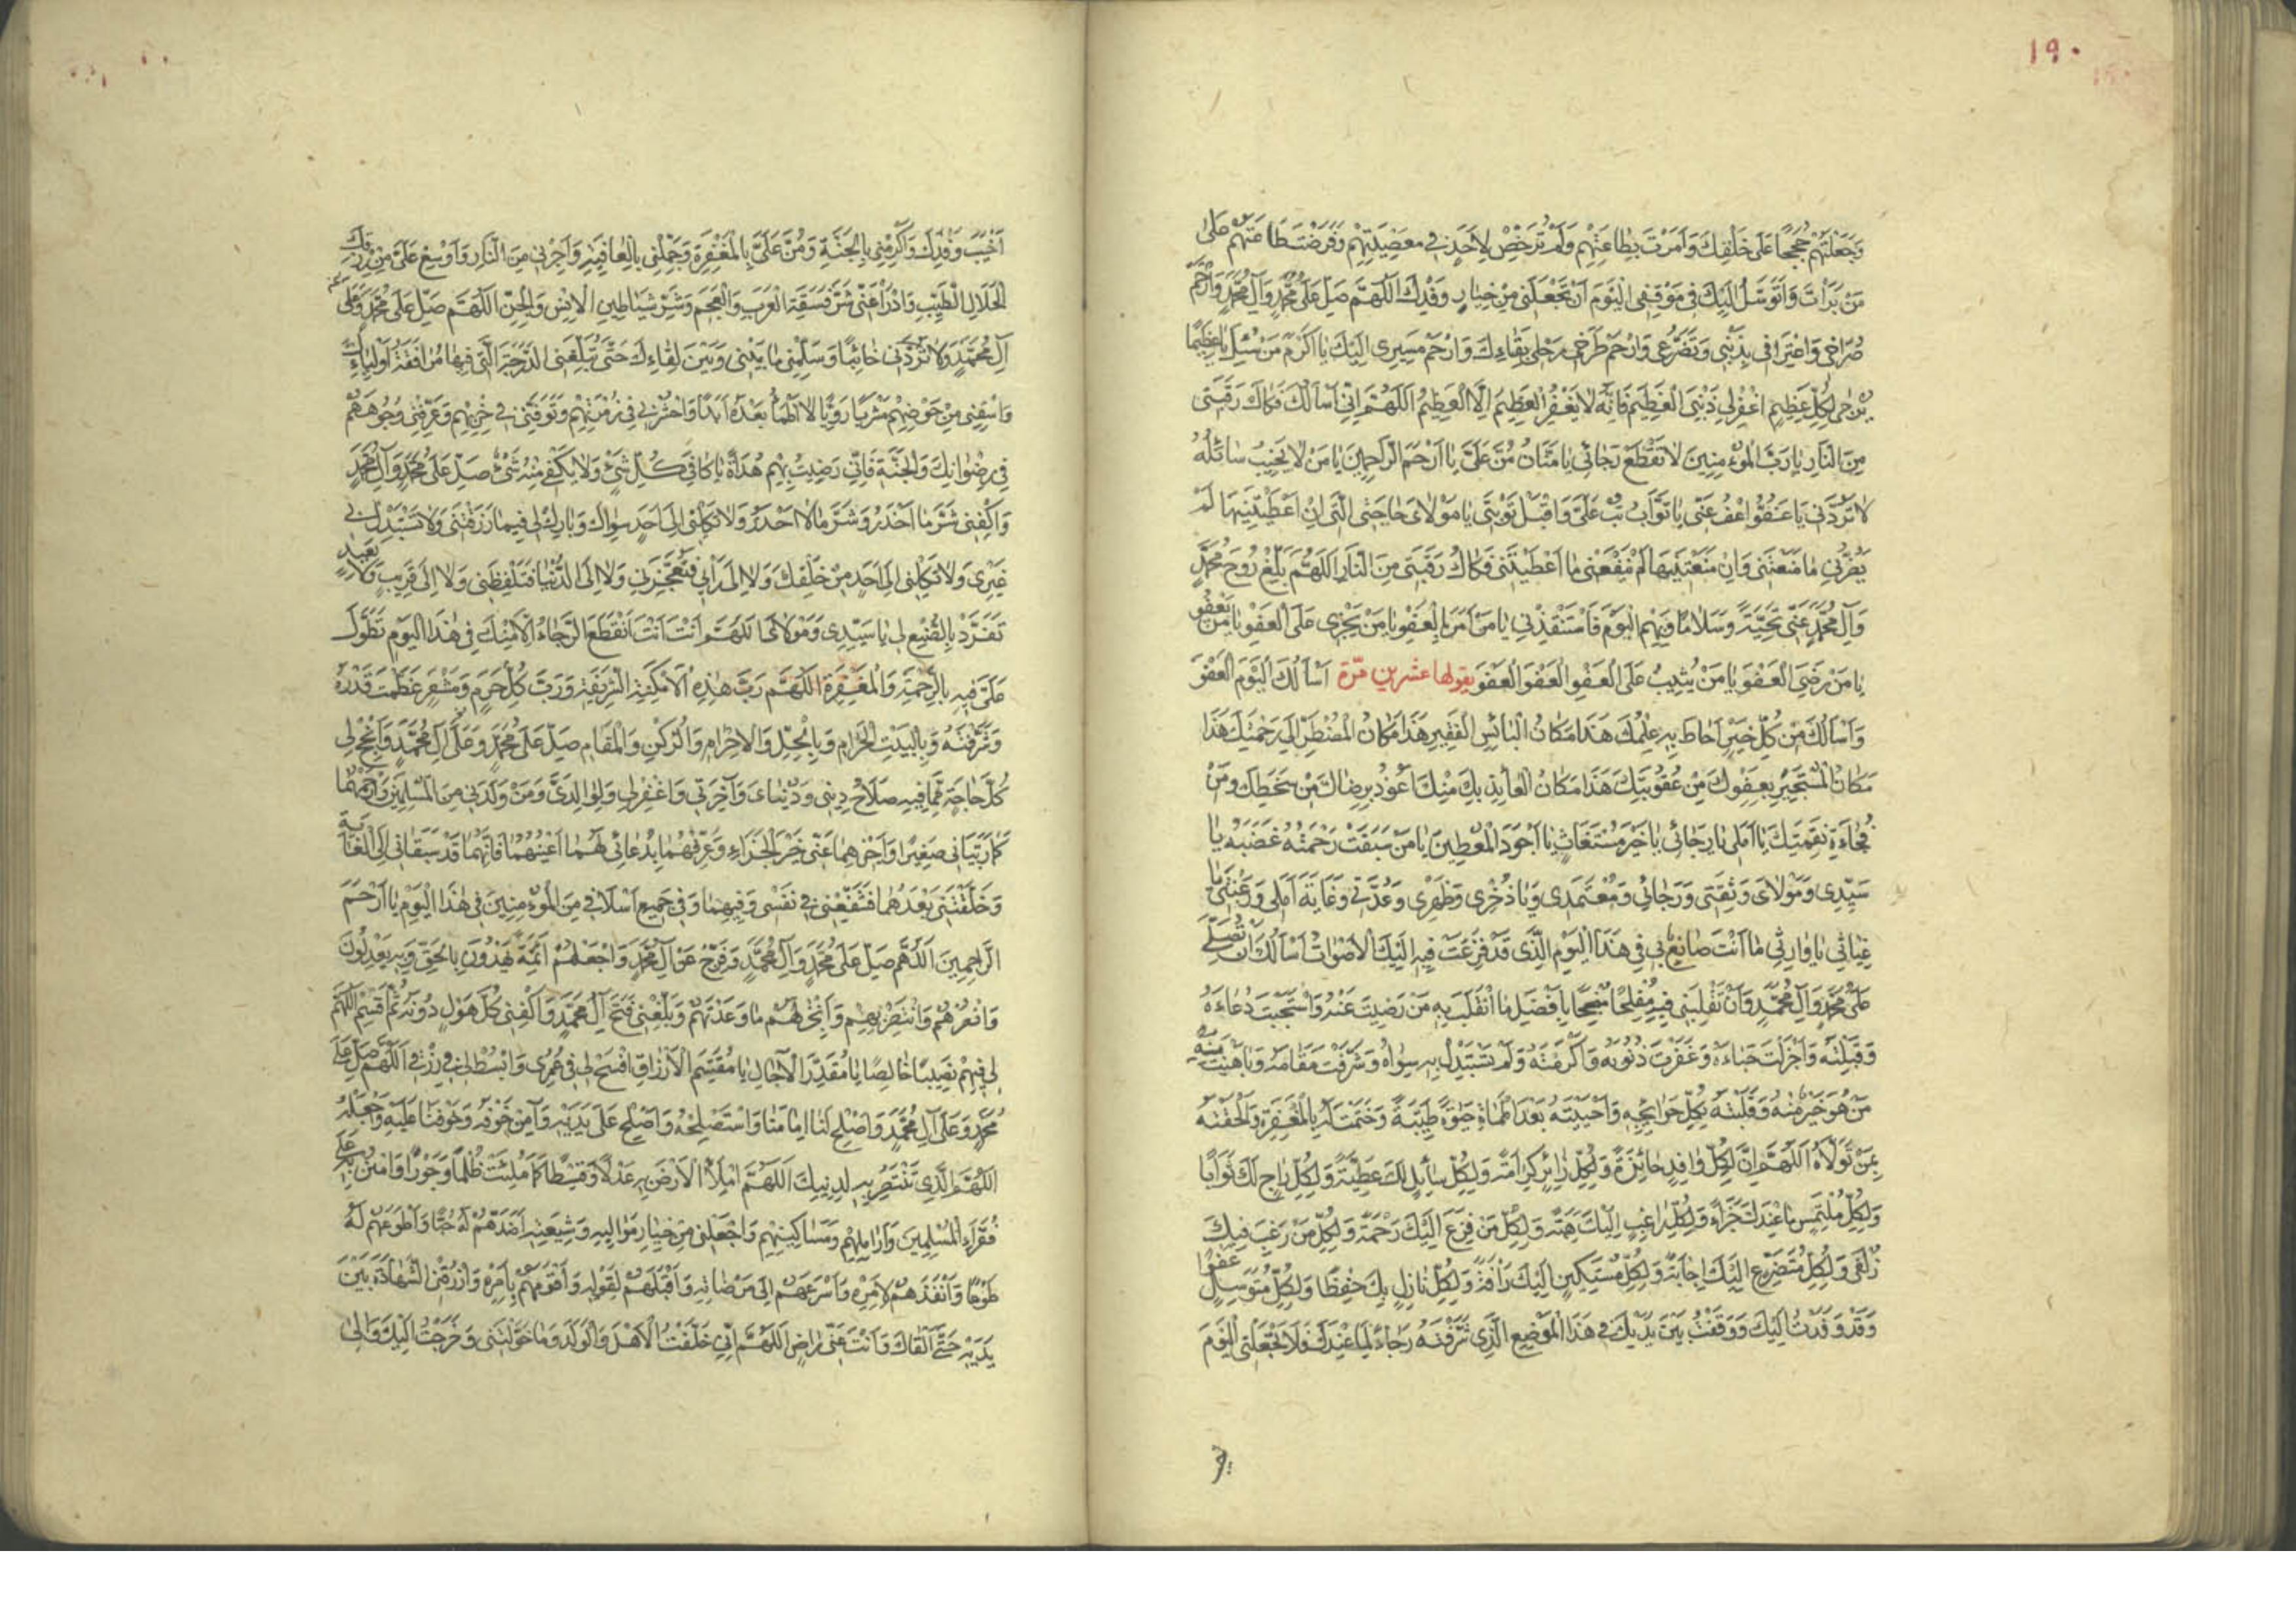 ١٩٠
وَجَعَلْتَهُمْ حُجَجًا عَلَى خَلْقِكَ وَاَمَرْتَ بِطَاعَتِهِمْ وَلَمْ تُرَخِّصْ لِاَحَدٍ فِى مَعْصِيَتِهِمْ وَفَرَضْتَ طَاعَتَهُمْ عَلَى
مَنْ بَرَاْتَ وَاَتَوَسَّلُ اِلَيْكَ فِى مَوْقِفِى الْيَوْمَ اَنْ تَجْعَلَنِى مِنْ خِيَارِ وَفْدِكَ اَللّهُمَّ صَلِّ عَلَى مُحَمَّدٍ وَآلِ مُحَمَّدٍ وَارْحَمْ
صُرَاخِى وَاعْتِرَافِى بِذَنْبِى وَتَضَرُّعِى وَارْحَمْ طَرْحِى رَحْلِى بِفِنَاءِكَ وَارْحَمْ مَسِيرِى اِلَيْكَ يَا اَكْرَمَ مَنْ سُئِلَ يَا عَظِيمًا
يُرْجَى لِكُلِّ عَظِيمٍ اغْفِرْ لِى ذَنْبِىَ الْعَظِيمَ فَاِنَّهُ لَا يَغْفِرُ الْعَظِيمَ اِلَّا الْعَظِيمُ اَللّهُمَّ اِنِّى اَسْاَلُكَ فَكَاكَ رَقَبَتِى
مِنَ النَّارِ يَا رَبَّ الْمُؤْمِنِينَ لَا تَقْطَعْ رَجَائِى يَا مَنَّانُ مُنَّ عَلَىَّ يَا اَرْحَمَ الرَّاحِمِينَ يَا مَنْ لَا يَخِيبُ سَائِلُهُ
لَا تَرُدَّنِى يَا عَفُوُّ اعْفُ عَنِّى يَا تَوَّابُ تُبْ عَلَىَّ وَاقْبَلْ تَوْبَتِى يَا مَوْلَاىَ حَاجَتِى الَّتِى اِنْ اَعْطَيْتَنِيهَا لَمْ
يَضُرَّنِى مَا مَنَعْتَنِى وَاِنْ مَنَعْتَنِيهَا لَمْ يَنْفَعْنِى مَا اَعْطَيْتَنِى فَكَاكُ رَقَبَتِى مِنَ النَّارِ اَللّهُمَّ بَلِّغْ رُوحَ مُحَمَّدٍ
وَآلِ مُحَمَّدٍ عَنِّى تَحِيَّةً وَسَلَامًا وَبِهِمُ الْيَوْمَ فَاسْتَنْقِذْنِى يَا مَنْ اَمَرَ بِالْعَفْوِ يَا مَنْ يَجْزِى عَلَى الْعَفْوِ يَا مَنْ يَعْفُو
يَا مَنْ رَضِىَ الْعَفْوَ يَا مَنْ يُثِيبُ عَلَى الْعَفْوِ الْعَفْوَ الْعَفْوَ يقولها عشرين مرّة اَسْاَلُكَ الْيَوْمَ الْعَفْوَ
وَاَسْاَلُكَ مِنْ كُلِّ خَيْرٍ اَحَاطَ بِهِ عِلْمُكَ هَذَا مَكَانُ الْبَائِسِ الْفَقِيرِ هَذَا مَكَانُ الْمُضْطَرِّ اِلَى رَحْمَتِكَ هَذَا
مَكَانُ الْمُسْتَجِيرِ بِعَفْوِكَ مِنْ عُقُوبَتِكَ هَذَا مَكَانُ الْعَائِذِ بِكَ مِنْكَ اَعُوذُ بِرِضَاكَ مِنْ سَخَطِكَ وَمِنْ
فُجَاءَةِ نَقِمَتِكَ يَا اَمَلِى يَا رَجَائِى يَا خَيْرَ مُسْتَغَاثٍ يَا اَجْوَدَ الْمُعْطِينَ يَا مَنْ سَبَقَتْ رَحْمَتُهُ غَضَبَهُ يَا
سَيِّدِى وَمَوْلَاىَ وَثِقَتِى وَرَجَائِى وَمُعْتَمَدِى وَيَا ذُخْرِى وَظَهْرِى وَعُدَّتِى وَغَايَةَ اَمَلِى وَرَغْبَتِى يَا
غِيَاثِى يَا وَارِثِى مَا اَنْتَ صَانِعٌ بِى فِى هَذَا الْيَوْمِ الَّذِى قَدْ فَزِعَتْ فِيهِ اِلَيْكَ الْاَصْوَاتُ اَسْاَلُكَ اَنْ تُصَلِّىَ
عَلَى مُحَمَّدٍ وَآلِ مُحَمَّدٍ وَاَنْ تَقْلِبَنِى فِيهِ مُفْلِحًا مُنْجِحًا بِاَفْضَلِ مَا انْقَلَبَ بِهِ مَنْ رَضِيتَ عَنْهُ وَاسْتَجَبْتَ دُعَاءَهُ
وَقَبِلْتَهُ وَاَجْزَلْتَ حِبَاءَهُ وَغَفَرْتَ ذُنُوبَهُ وَاَكْرَمْتَهُ وَلَمْ تَسْتَبْدِلْ بِهِ سِوَاهُ وَشَرَّفْتَ مَقَامَهُ وَبَاهَيْتَ بِهِ
مَنْ هُوَ خَيْرٌ مِنْهُ وَقَلَبْتَهُ بِكُلِّ حَوَائِجِهِ وَاَحْيَيْتَهُ بَعْدَ الْمَمَاتِ حَيٰوةً طَيِّبَةً وَخَتَمْتَ لَهُ بِالْمَغْفِرَةِ وَاَلْحَقْتَهُ
بِمَنْ تَوَلَّاهُ اَللّهُمَّ اِنَّ لِكُلِّ وَافِدٍ جَائِزَةً وَلِكُلِّ زَائِرٍ كَرَامَةً وَلِكُلِّ سَائِلٍ لَكَ عَطِيَّةً وَلِكُلِّ رَاجٍ لَكَ ثَوَابًا
وَلِكُلِّ مُلْتَمِسٍ مَا عِنْدَكَ جَزَاءً وَلِكُلِّ رَاغِبٍ اِلَيْكَ هِبَةً وَلِكُلِّ مَنْ فَزِعَ اِلَيْكَ رَحْمَةً وَلِكُلِّ مَنْ رَغِبَ فِيكَ
زُلْفَى وَلِكُلِّ مُتَضَرِّعٍ اِلَيْكَ اِجَابَةً وَلِكُلِّ مُسْتَكِينٍ اِلَيْكَ رَاْفَةً وَلِكُلِّ نَازِلٍ بِكَ حِفْظًا وَلِكُلِّ مُتَوَسِّلٍ عَفْوًا
وَقَدْ وَفَدْتُ اِلَيْكَ وَوَقَفْتُ بَيْنَ يَدَيْكَ فِى هَذَا الْمَوْضِعِ الَّذِى شَرَّفْتَهُ رَجَاءً لِمَا عِنْدَكَ فَلَا تَجْعَلْنِى الْيَوْمَ
اَخْيَبَ وَفْدِكَ وَاَكْرِمْنِى بِالْجَنَّةِ وَمُنَّ عَلَىَّ بِالْمَغْفِرَةِ وَجَمِّلْنِى بِالْعَافِيَةِ وَاَجِرْنِى مِنَ النَّارِ وَاَوْسِعْ عَلَىَّ مِنْ رِزْقِكَ
الْحَلَالِ الطَّيِّبِ وَادْرَاْ عَنِّى شَرَّ فَسَقَةِ الْعَرَبِ وَالْعَجَمِ وَشَرَّ شَيَاطِينِ الْاِنْسِ وَالْجِنِّ اَللّهُمَّ صَلِّ عَلَى مُحَمَّدٍ وَعَلَى
آلِ مُحَمَّدٍ وَلَا تَرُدَّنِى خَائِبًا وَسَلِّمْنِى مَا بَيْنِى وَبَيْنَ لِقَاءِكَ حَتَّى تُبَلِّغَنِى الدَّرَجَةَ الَّتِى فِيهَا مُرَافَقَةُ اَوْلِيَاءِكَ
وَاسْقِنِى مِنْ حَوْضِهِمْ مَشْرَبًا رَوِيًّا لَا اَظْمَاُ بَعْدَهُ اَبَدًا وَاحْشُرْنِى فِى زُمْرَتِهِمْ وَتَوَفَّنِى فِى حِزْبِهِمْ وَعَرِّفْنِى وُجُوهَهُمْ
فِى رِضْوَانِكَ وَالْجَنَّةِ فَاِنِّى رَضِيتُ بِهِمْ هُدَاةً يَا كَافِىَ كُلِّ شَىْءٍ وَلَا يَكْفِى مِنْهُ شَىْءٌ صَلِّ عَلَى مُحَمَّدٍ وَآلِ مُحَمَّدٍ
وَاكْفِنِى شَرَّ مَا اَحْذَرُ وَشَرَّ مَا لَا اَحْذَرُ وَلَا تَكِلْنِى اِلَى اَحَدٍ سِوَاكَ وَبَارِكْ لِى فِيمَا رَزَقْتَنِى وَلَا تَسْتَبْدِلْ بِى
غَيْرِى وَلَا تَكِلْنِى اِلَى اَحَدٍ مِنْ خَلْقِكَ وَلَا اِلَى رَاْيِى فَتُعَجِّزَنِى وَلَا اِلَى الدُّنْيَا فَتَلْفِظَنِى وَلَا اِلَى قَرِيبٍ وَلَا بَعِيدٍ
تَفَرَّدْ بِالصَّنِيعِ لِى يَا سَيِّدِى وَمَوْلَاىَ اَللّهُمَّ اَنْتَ اَنْتَ انْقَطَعَ الرَّجَاءُ اِلَّا مِنْكَ فِى هَذَا الْيَوْمِ تَطَوَّلْ
عَلَىَّ فِيهِ بِالرَّحْمَةِ وَالْمَغْفِرَةِ اَللّهُمَّ رَبَّ هَذِهِ الْاَمْكِنَةِ الشَّرِيفَةِ وَرَبَّ كُلِّ حَرَمٍ وَمَشْعَرٍ عَظَّمْتَ قَدْرَهُ
وَشَرَّفْتَهُ وَبِالْبَيْتِ الْحَرَامِ وَبِالْحِلِّ وَالْاِحْرَامِ وَالرُّكْنِ وَالْمَقَامِ صَلِّ عَلَى مُحَمَّدٍ وَعَلَى آلِ مُحَمَّدٍ وَاَنْجِحْ لِى
كُلَّ حَاجَةٍ مِمَّا فِيهِ صَلَاحُ دِينِى وَدُنْيَاىَ وَآخِرَتِى وَاغْفِرْ لِى وَلِوَالِدَىَّ وَمَنْ وَلَدَنِى مِنَ الْمُسْلِمِينَ وَارْحَمْهُمَا
كَمَا رَبَّيَانِى صَغِيرًا وَاجْزِهِمَا عَنِّى خَيْرَ الْجَزَاءِ وَعَرِّفْهُمَا بِدُعَائِى لَهُمَا اَعْيُنَهُمَا فَاِنَّهُمَا قَدْ سَبَقَانِى اِلَى الْغَايَةِ
وَخَلَّفْتَنِى بَعْدَهُمَا فَشَفِّعْنِى فِى نَفْسِى وَفِيهِمَا وَفِى جَمِيعِ اَسْلَافِى مِنَ الْمُؤْمِنِينَ فِى هَذَا الْيَوْمِ يَا اَرْحَمَ
الرَّاحِمِينَ اَللّهُمَّ صَلِّ عَلَى مُحَمَّدٍ وَآلِ مُحَمَّدٍ وَفَرِّجْ عَنْ آلِ مُحَمَّدٍ وَاجْعَلْهُمْ اَئِمَّةً يَهْدُونَ بِالْحَقِّ وَبِهِ يَعْدِلُونَ
وَانْصُرْهُمْ وَانْتَصِرْ بِهِمْ وَاَنْجِزْ لَهُمْ مَا وَعَدْتَهُمْ وَبَلِّغْنِى فَتْحَ آلِ مُحَمَّدٍ وَاكْفِنِى كُلَّ هَوْلٍ دُونَهُ ثُمَّ اقْسِمِ اللّهُمَّ
لِى فِيهِمْ نَصِيبًا خَالِصًا يَا مُقَدِّرَ الْآجَالِ يَا مُقَسِّمَ الْاَرْزَاقِ افْسَحْ لِى فِى عُمْرِى وَابْسُطْ لِى فِى رِزْقِى اَللّهُمَّ صَلِّ عَلَى
مُحَمَّدٍ وَعَلَى آلِ مُحَمَّدٍ وَاَصْلِحْ لَنَا اِمَامَنَا وَاسْتَصْلِحْهُ وَاَصْلِحْ عَلَى يَدَيْهِ وَآمِنْ خَوْفَهُ وَخَوْفَنَا عَلَيْهِ وَاجْعَلْهُ
اللّهُمَّ الَّذِى تَنْتَصِرُ بِهِ لِدِينِكَ اَللّهُمَّ امْلَأِ الْاَرْضَ بِهِ عَدْلًا وَقِسْطًا كَمَا مُلِئَتْ ظُلْمًا وَجَوْرًا وَامْنُنْ بِهِ عَلَى
فُقَرَاءِ الْمُسْلِمِينَ وَاَرَامِلِهِمْ وَمَسَاكِينِهِمْ وَاجْعَلْنِى مِنْ خِيَارِ مَوَالِيهِ وَشِيعَتِهِ اَشَدِّهِمْ لَهُ حُبًّا وَاَطْوَعِهِمْ لَهُ
طَوْعًا وَاَنْفَذِهِمْ لِاَمْرِهِ وَاَسْرَعِهِمْ اِلَى مَرْضَاتِهِ وَاَقْبَلِهِمْ لِقَوْلِهِ وَاَقْوَمِهِمْ بِاَمْرِهِ وَارْزُقْنِى الشَّهَادَةَ بَيْنَ
يَدَيْهِ حَتَّى اَلْقَاكَ وَاَنْتَ عَنِّى رَاضٍ اَللّهُمَّ اِنِّى خَلَّفْتُ الْاَهْلَ وَالْوَلَدَ وَمَا خَوَّلْتَنِى وَخَرَجْتُ اِلَيْكَ وَاِلَى